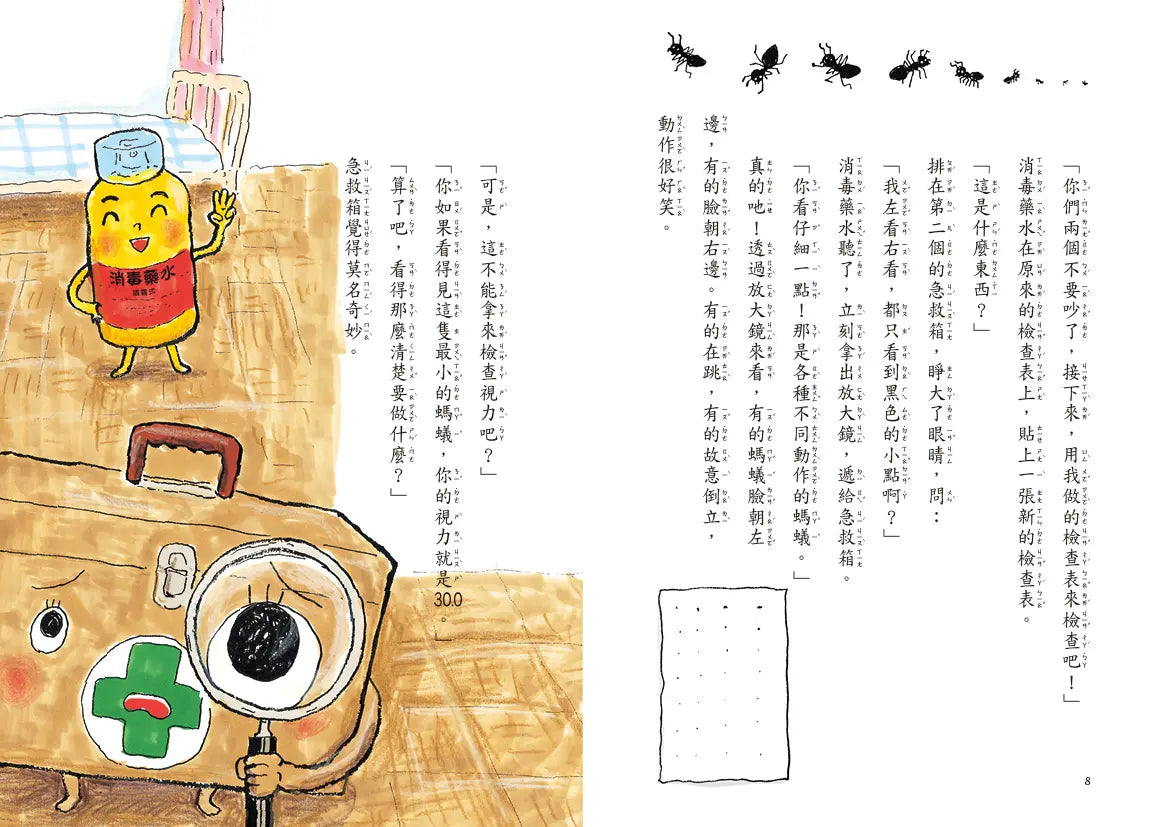 「你們兩個不要吵了，接下來，用我做的檢查表來檢查吧！」
消毒藥水在原來的檢查表上，貼上一張新的檢查表。
「這是什麼東西？」
排在第二個的急救箱，睜大了眼睛，問：
「我左看右看，都只看到黑色的小點啊？」
消毒藥水聽了，立刻拿出放大鏡，遞給急救箱。
「你看仔細一點！那是各種不同動作的螞蟻。」
真的吔！透過放大鏡來看，有的螞蟻臉朝左
邊，有的臉朝右邊。有的在跳，有的故意倒立，
動作很好笑。
8
「可是，這不能拿來檢查視力吧？」
「你如果看得見這隻最小的螞蟻，你的視力就是30.0。」
「算了吧，看得那麼清楚要做什麼？」
急救箱覺得莫名奇妙。
消毒藥水
噴霧式